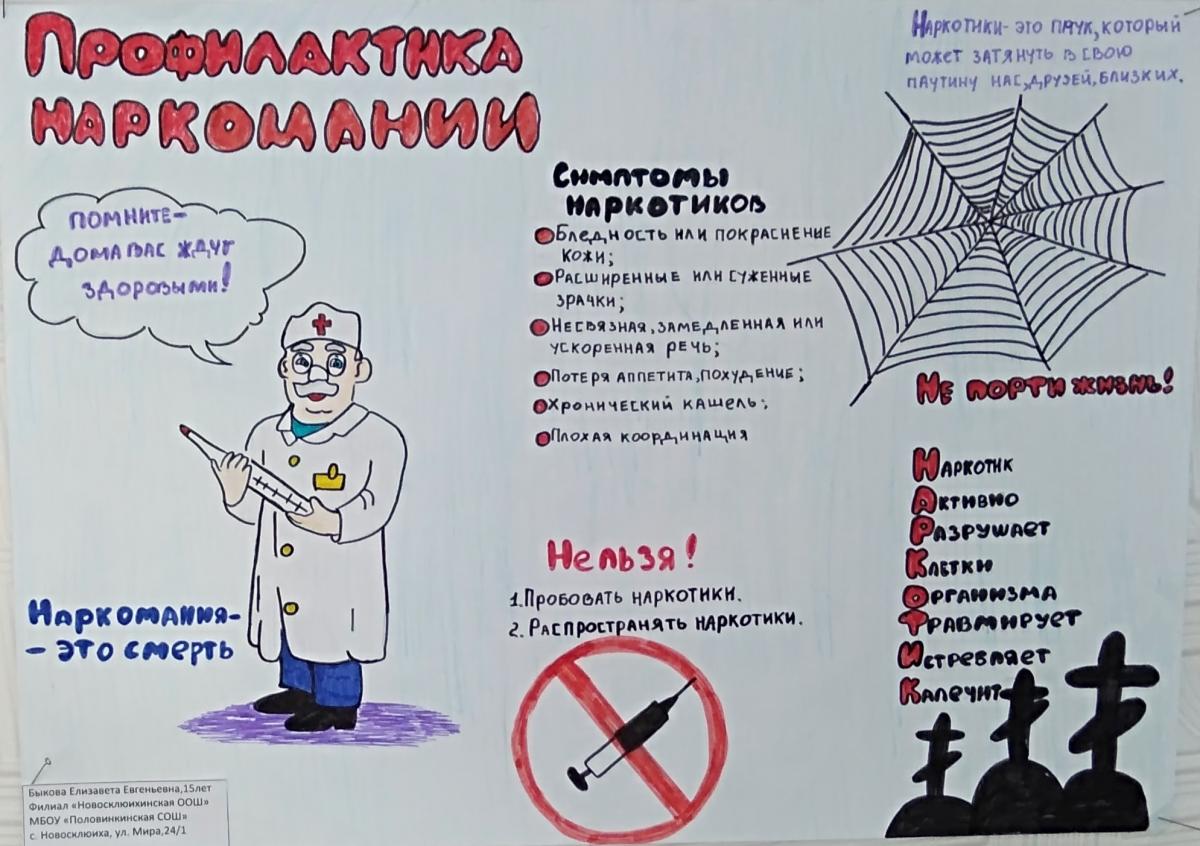 Профилактика
наркомании
Помните-
дома вас ждут
здоровыми!
Наркомания-
- это смерть
Быкова Елизавета Евгеньевна,15лет
Филиал «Новосклюихинская ООШ»
МБОУ «Половинкинская СОШ»
с. Новосклюиха, ул. Мира,24/1
Симптомы
наркотиков
Бледность или покраснение
кожи;
Расширенные или суженные
зрачки;
Несвязная, замедленная или
ускоренная речь;
Потеря аппетита, похудение;
Хронический кашель;
Плохая координация
Нельзя!
1.Пробовать наркотики.
2. Распространять наркотики.
Наркотики- это паук, который
может затянуть в свою
паутину нас, друзей, близких.
Не порти жизнь!
Наркотик
Активно
Разрушает
Клетки
Организма
Травмирует
Истревляет
Калечит